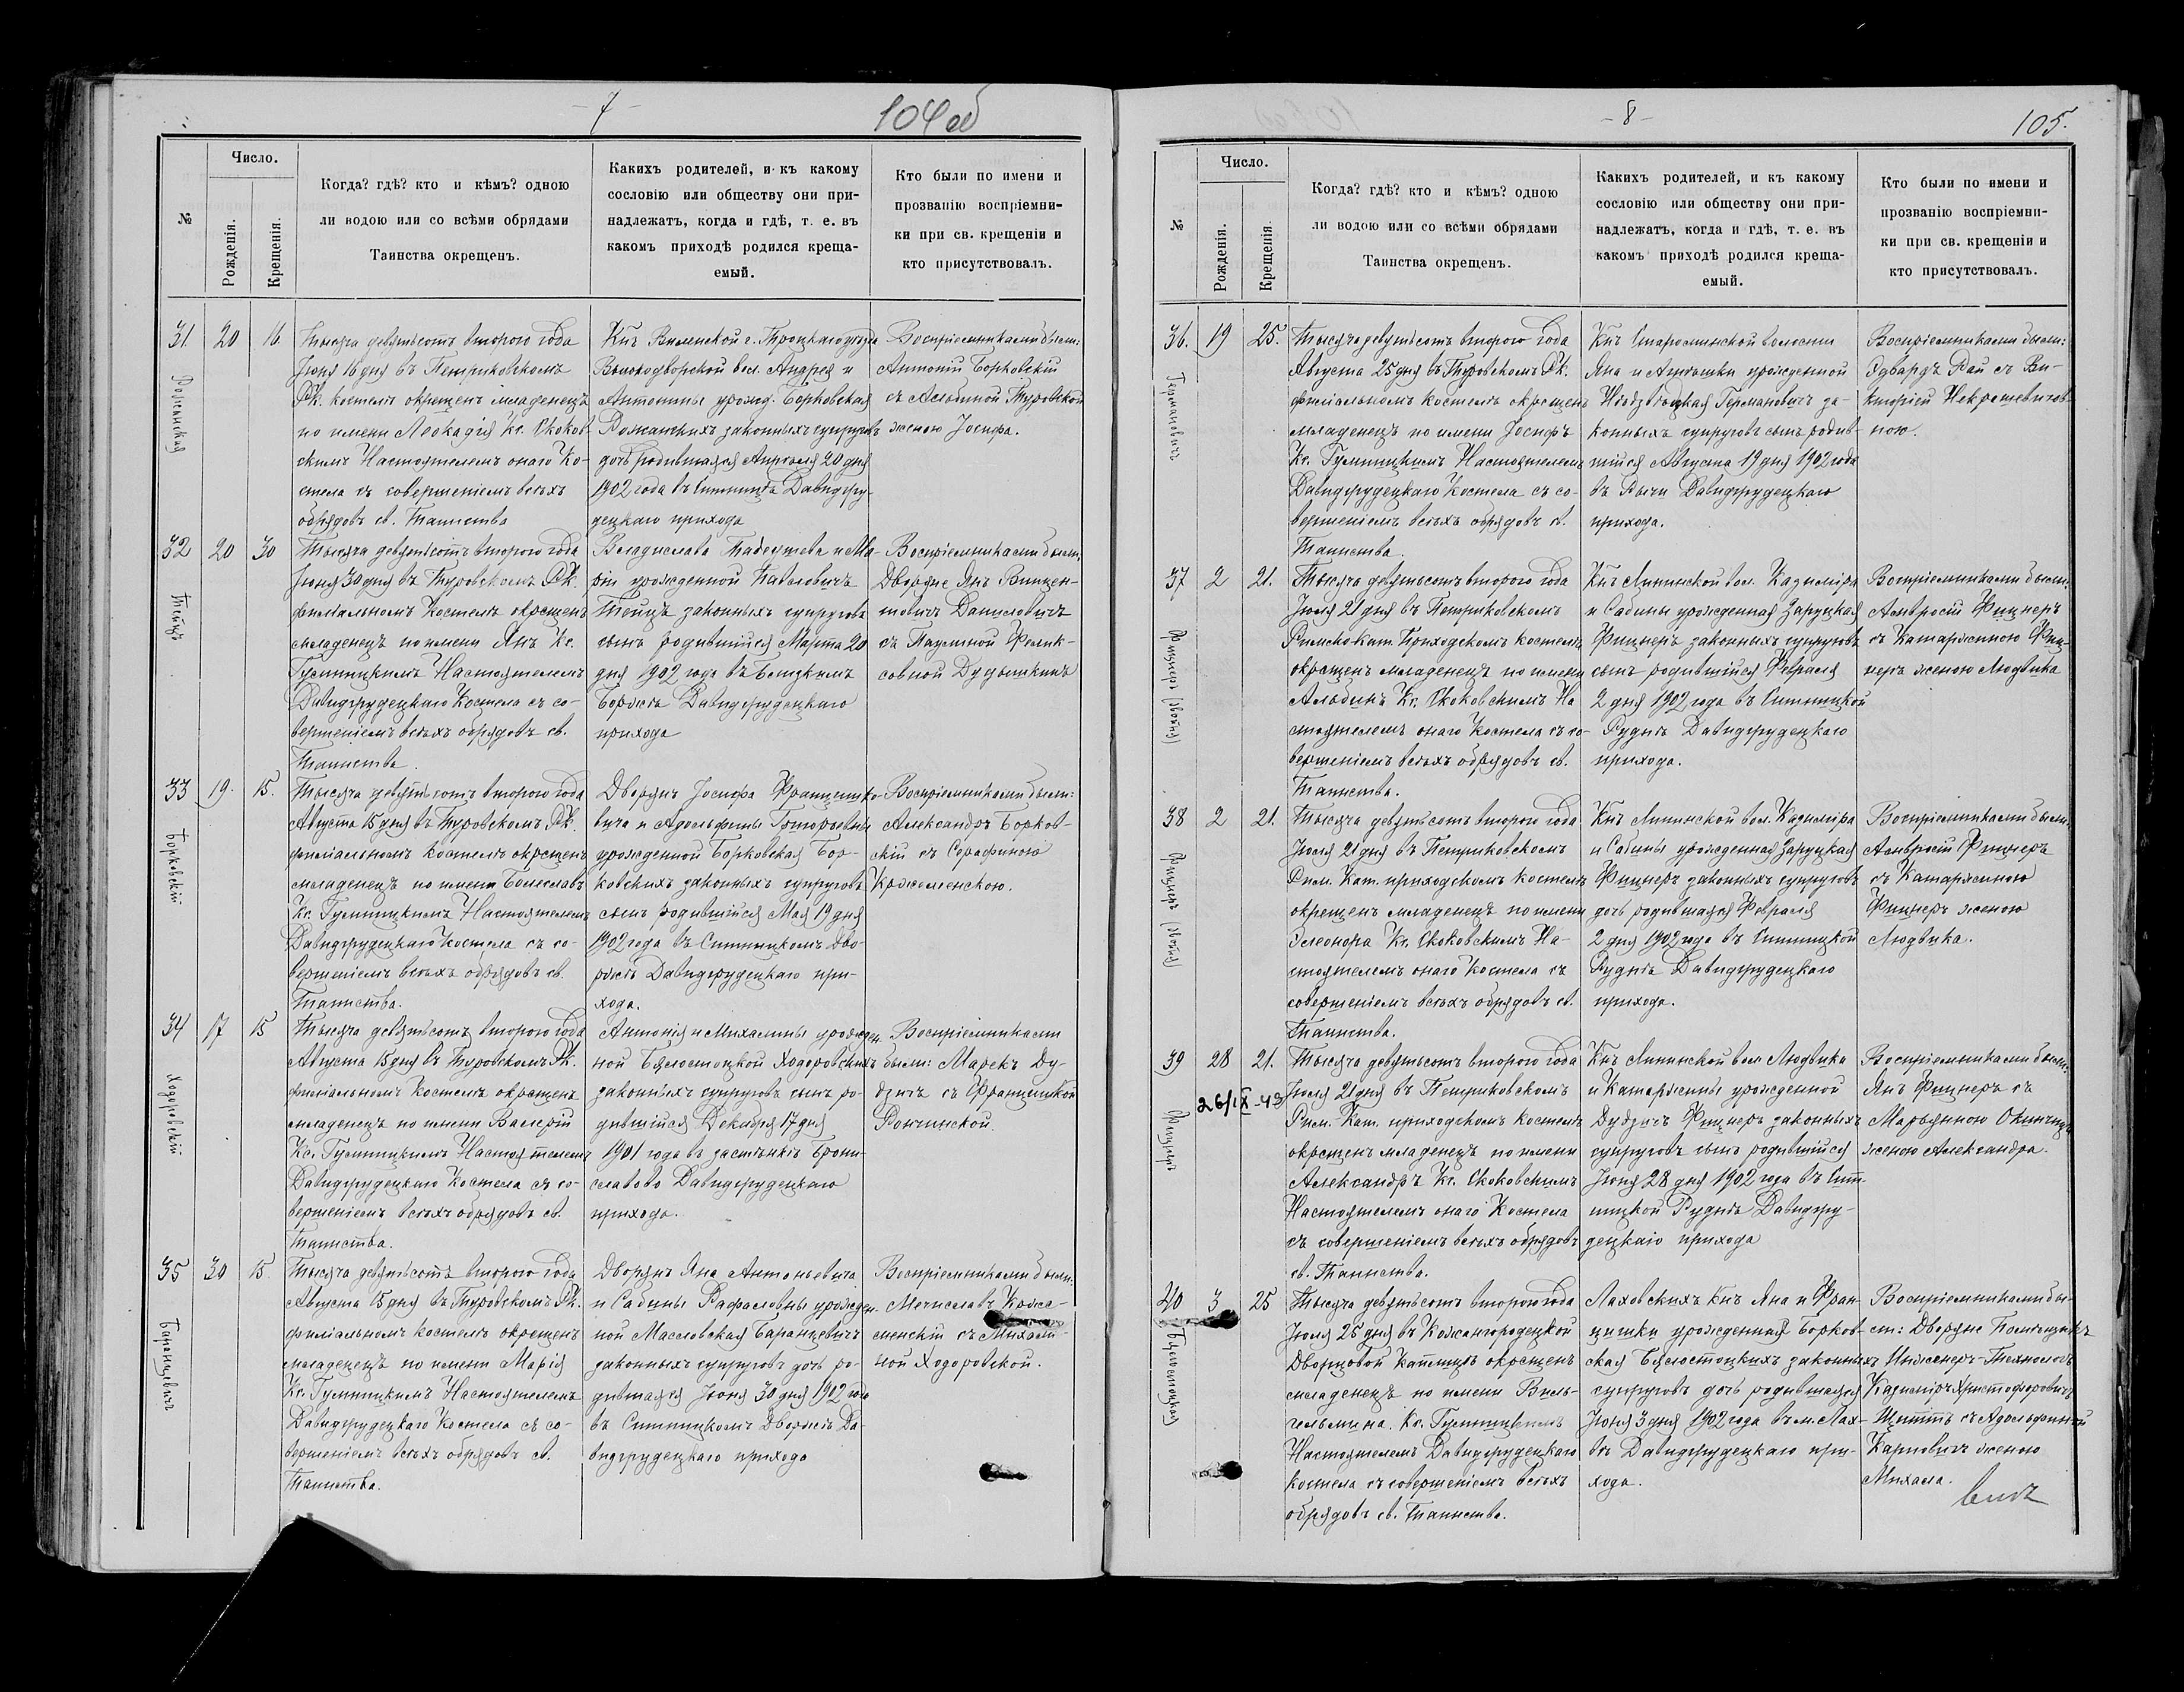 - 7 -
104об
Число.
№
Рожденія.
Крещенія.
Когда? гдѣ? кто и кѣмъ? одною
ли водою или со всѣми обрядами
Таинства окрещенъ.
Какихъ родителей, и къ какому
сословію или обществу они при-
надлежатъ, когда и гдѣ, т. е. въ
какомъ приходѣ родился креща-
емый.
Кто были по имени и
прозванію воспріемни-
ки при св. крещеніи и
кто присутствовалъ.
31
20
16
Тысяча девятьсотъ второго года
Іюня 16 дня въ Петриковскомъ
Рк. костелѣ окрещенъ младенецъ
по имени Леокадія Кс. Скоков-
скимъ Настоятелемъ онаго Ко-
стела съ совершеніемъ всѣхъ
обрядовъ св. Таинства
Кнъ Виленской г. Троцкаго уѣзда
Высокодворской вол. Андрея и
Антонины урожд. Борковская
законныхъ супруговъ
дочь родившаяся Апрѣля 20 дня
1902 года въ Давидгру-
децкаго прихода
Воспріемниками были:
Антоній Борковскій
съ Альбиной Туровской
женою Іосифа.
32
20
30
Тейцъ
Тысяча девятьсотъ второго года
Іюня 30 дня въ Туровскомъ Рк.
филіальномъ Костелѣ окрещенъ
младенецъ по имени Янъ Кс.
Гумницкимъ Настоятелемъ
Давидгрудецкаго Костела съ со-
вершеніемъ всѣхъ обрядовъ св.
Таинства.
Владислава Тадеушева и Ма-
ріи урожденной Павловичъ
Тейцъ законныхъ супруговъ
сынъ родившійся Марта 20
дня 1902 года въ
Давидгрудецкаго
прихода
Воспріемниками были:
Дворяне Янъ Викен-
товичъ Даниловичъ
съ Паулиной Феликс-
совной
33
19.
15.
Борковскій
Тысяча девятьсотъ второго года
Августа 15 дня въ Туровскомъ Рк.
филіальномъ костелѣ окрещенъ
младенецъ по имени Болеславъ
Кс. Гумницкимъ Настоятелемъ
Давидгрудецкаго Костела съ со-
вершеніемъ всѣхъ обрядовъ св.
Таинства.
Дворянъ Іосифа Францишко-
вича и Адольфины Григорьевны
урожденной Борковская Бор-
ковскихъ законныхъ супруговъ
сынъ родившійся Мая 19 дня
1902 года въ Ситницкомъ Дво-
рцѣ Давидгрудецкаго при-
хода.
Воспріемниками были:
Александръ Борков-
скій съ Серафиною
34
17
15
Ходоровскій
Тысяча девятьсотъ второго года
Августа 15 дня въ Туровскомъ Рк.
филіальномъ Костелѣ окрещенъ
младенецъ по имени Валерій
Кс. Гумницкимъ Настоятелемъ
Давидгрудецкаго Костела съ со-
вершеніемъ всѣхъ обрядовъ св.
Таинства.
Антонія и Михалины урожден-
ной Бѣлостоцкой Ходоровскихъ
законныхъ супруговъ сынъ ро-
дившійся Декабря 17 дня
1901 года въ застѣнкѣ Брони-
славово Давидгрудецкаго
прихода.
Воспріемниками
были: Марекъ Ду-
бзичъ съ Францишкой
35
30
15
Баранцевичъ
Тысяча девятьсотъ второго года
Августа 15 дня въ Туровскомъ Рк.
филіальномъ костелѣ окрещенъ
младенецъ по имени Марія
Кс. Гумницкимъ Настоятелемъ
Давидгрудецкаго Костела съ со-
вершеніемъ всѣхъ обрядовъ св.
Таинства.
Дворянъ Яна Антоньевича
и Сабины Рафаловны урожден-
ной Масловская Баранцевичъ
законныхъ супруговъ дочь ро-
дившаяся Іюня 30 дня 1902 года
въ Ситницкомъ Дворцѣ Да-
видгрудецкаго прихода
Воспріемниками были:
Мечиславъ
съ Михали-
ной Ходоровской.
- 8 -
105.
Число.
№
Рожденія.
Крещенія.
Когда? гдѣ? кто и кѣмъ? одною
ли водою или со всѣми обрядами
Таинства окрещенъ.
Какихъ родителей, и къ какому
сословію или обществу они при-
надлежатъ, когда и гдѣ, т. е. въ
какомъ приходѣ родился креща-
емый.
Кто были по имени и
прозванію воспріемни-
ки при св. крещеніи и
кто присутствовалъ.
36.
19
25.
Германовичъ
Тысяча девятьсотъ второго года
Августа 25 дня въ Туровскомъ Рк.
филіальномъ костелѣ окрещенъ
младенецъ по имени Іосифъ
Кс. Гумницкимъ Настоятелемъ
Давидгрудецкаго Костела съ со-
вершеніемъ всѣхъ обрядовъ св.
Таинства.
Кнъ волости
Яна и урожденной
Германовичъ за-
конныхъ супруговъ сынъ родив-
шійся Августа 19 дня 1902 года
въ Давидгрудецкаго
прихода.
Воспріемниками были:
Эдвардъ Рай съ Ви-
кторіей Некрашевичов-
ною.
37
2
21.
Фицнеръ (двойня)
Тысяча девятьсотъ второго года
Іюля 21 дня въ Петриковскомъ
Римско-кат. Приходскомъ костелѣ
окрещенъ младенецъ по имени
Альбинъ Кс. Скоковскимъ На-
стоятелемъ онаго Костела съ со-
вершеніемъ всѣхъ обрядовъ св.
Таинства.
Кнъ Ленинской вол. Казиміра
и Сабины урожденная Заруцкая
Фицнеръ законныхъ супруговъ
сынъ родившійся Февраля
2 дня 1902 года въ Ситницкой
Руднѣ Давидгрудецкаго
прихода.
Воспріемниками были:
Амвросій Фицнеръ
съ Катаржиною Фиц-
неръ женою Людвика
38
2
21.
Фицнеръ (двойня)
Тысяча девятьсотъ второго года
Іюля 21 дня въ Петриковскомъ
Рим. Кат. приходскомъ костелѣ
окрещенъ младенецъ по имени
Элеонора Кс. Скоковскимъ На-
стоятелемъ онаго Костела съ
совершеніемъ всѣхъ обрядовъ св.
Таинства.
Кнъ Ленинской вол. Казиміра
и Сабины урожденная Заруцкая
Фицнеръ законныхъ супруговъ
дочь родившаяся Февраля
2 дня 1902 года въ Ситницкой
Руднѣ Давидгрудецкаго
прихода.
Воспріемниками были:
Амвросій Фицнеръ
съ Катаржиною
Фицнеръ женою
Людвика.
39
28
21.
26/IX-43
Фицнеръ
Тысяча девятьсотъ второго года
Іюля 21 дня въ Петриковскомъ
Рим. Кат. приходскомъ костелѣ
окрещенъ младенецъ по имени
Александръ Кс. Скоковскимъ
Настоятелемъ онаго Костела
съ совершеніемъ всѣхъ обрядовъ
св. Таинства.
Кнъ Ленинской вол. Людвика
и Катаржины урожденной
Дубзичъ Фицнеръ законныхъ
супруговъ сынъ родившійся
Іюня 28 дня 1902 года въ Сит-
ницкой Руднѣ Давидгру-
децкаго прихода
Воспріемниками были:
Янъ Фицнеръ съ
Марьянною
женою Александра.
40
3
25
Бѣлостоцкая
Тысяча девятьсотъ второго года
Іюля 25 дня въ Кожангородецкой
Дворцовой Каплицѣ окрещенъ
младенецъ по имени Виль-
гельмина. Кс. Гумницкимъ
Настоятелемъ Давидгрудецкаго
костела съ совершеніемъ всѣхъ
обрядовъ св. Таинства.
Лаховскихъ Кнъ Яна и Фран-
цишки урожденная Борков-
ская Бѣлостоцкихъ законныхъ
супруговъ дочь родившаяся
Іюня 3 дня 1902 года въ м. Лах-
вѣ Давидгрудецкаго при-
хода.
Воспріемниками бы-
ли: Дворяне Помѣщикъ
Инженеръ-Технологъ
Казиміръ Христофоровичъ
съ Адольфиной
Карповичъ женою
Михала.